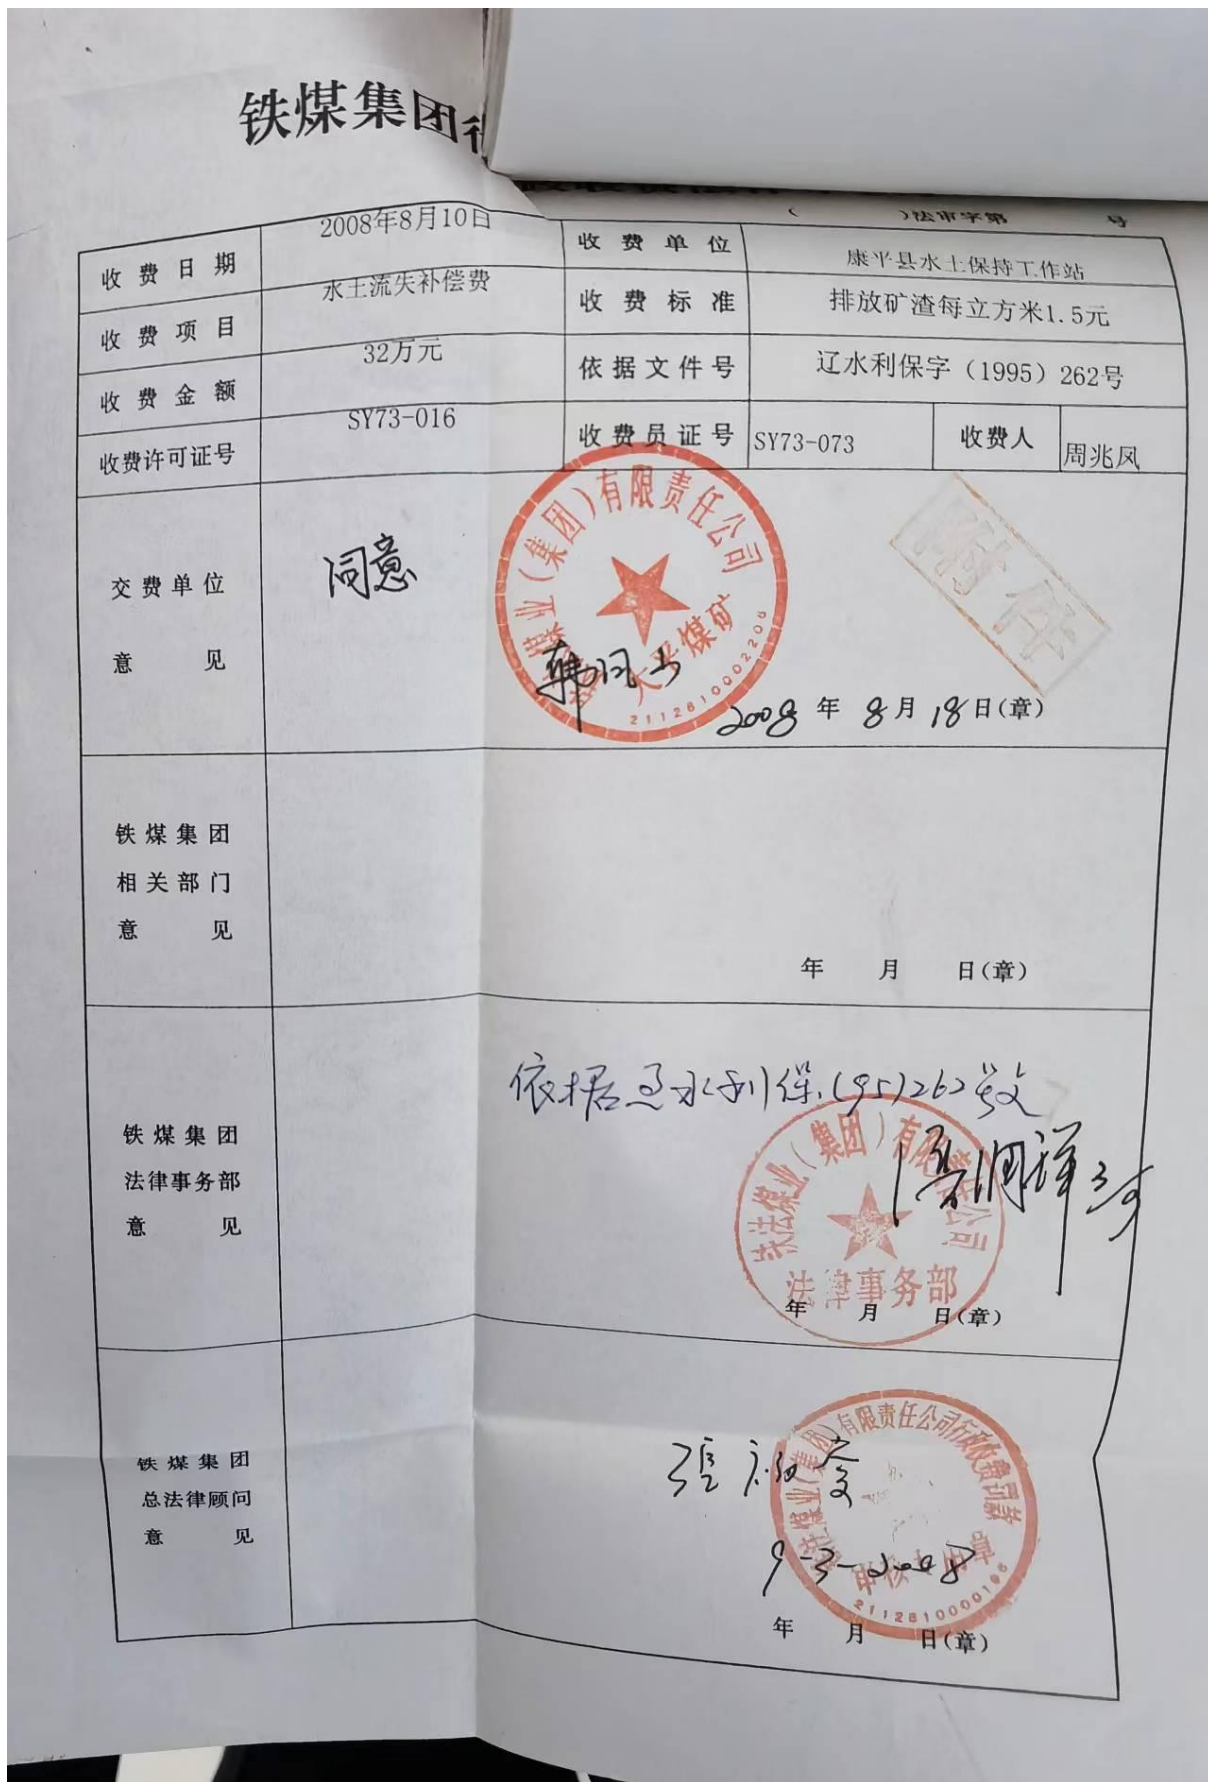 铁煤集团
( )法审字第 号
收费日期 2008年8月10日 收费单位 康平县水土保持工作站
收费项目 水土流失补偿费 收费标准 排放矿渣每立方米1.5元
收费金额 32万元 依据文件号 辽水利保字（1995）262号
收费许可证号 SY73-016 收费员证号 SY73-073 收费人 周兆凤
交费单位
意见
同意
煤业(集团)有限责任公司
大平煤矿
2112810002206
附件
2008年8月18日(章)
铁煤集团
相关部门
意见
年 月 日(章)
铁煤集团
法律事务部
意见
依据辽水利保(95)262号文
铁法煤业(集团)有限责任公司
法律事务部
年 月 日(章)
铁煤集团
总法律顾问
意见
铁法煤业(集团)有限责任公司行政收费罚款
审核专用章
2112810000196
9-3-2008
年 月 日(章)